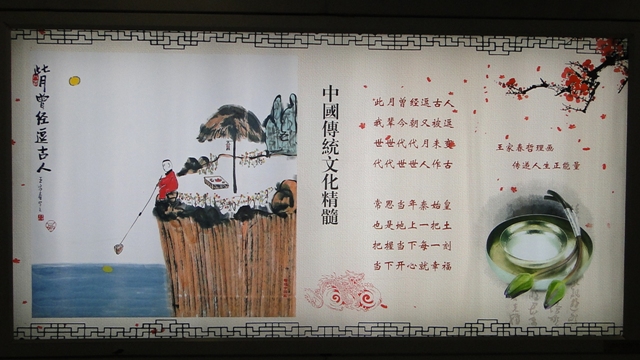 此月曾经逗古人
王家春
中國傳統文化精髓
此月曾经逗古人
我辈今朝又被逗
世世代代月未变
代代世世人作古
常思当年秦始皇
也是地上一把土
把握当下每一刻
当下开心就幸福
王家春哲理画
传递人生正能量